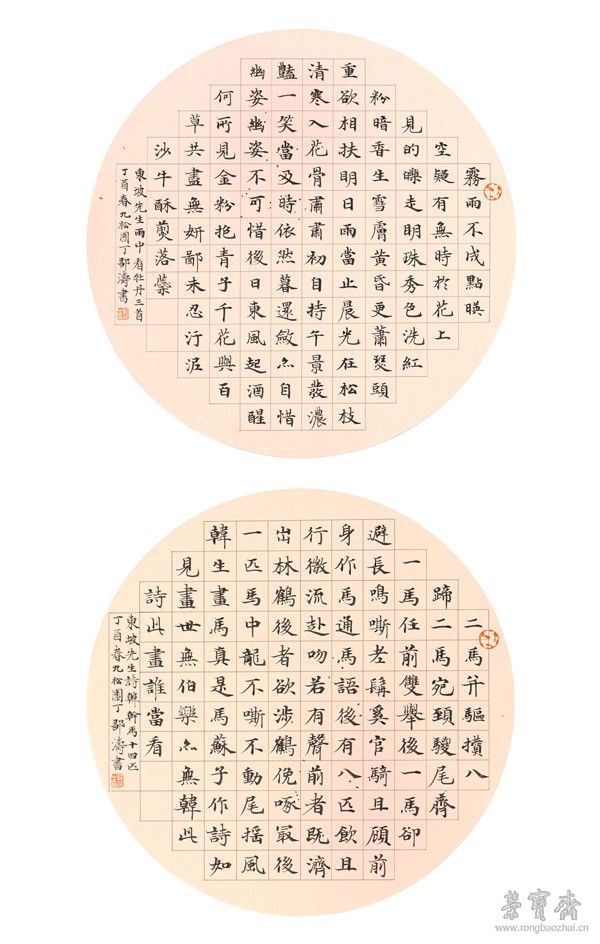 霧雨不成點暎
空疑有無時於花上
見的皪走明珠秀色洗紅
粉暗香生雪膚黃昏更蕭瑟頭
重欲相扶明日雨當止晨光在松枝
清寒入花骨肅肅初自持午景發濃
豔一笑當及時依然暮還斂亦自惜
幽姿幽姿不可惜後日東風起酒醒
何所見金粉抱青子千花與百
草共盡無妍鄙未忍汙泥
沙牛酥煎落蘂
東坡先生雨中看牡丹三首
丁酉春九松園丁鄒濤書
二馬并驅攢八
蹄二馬宛頸騣尾齊
一馬任前雙舉後一馬卻
避長鳴嘶老髯奚官騎且顧前
身作馬通馬語後有八匹飲且
行微流赴吻若有聲前者既濟
出林鶴後者欲涉鶴俛啄最後
一匹馬中龍不嘶不動尾搖風
韓生畫馬真是馬蘇子作詩如
見畫世無伯樂亦無韓此
詩此畫誰當看
東坡先生詩韓幹馬十四匹
丁酉春九松園丁鄒濤書
榮寶齋
www.rongbaozhai.cn